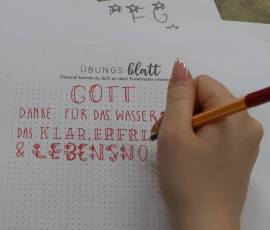 ÜBUNGS blatt
Diesmal kannst du dich an dem Punktraster orientieren
GOTT
DANKE FÜR DAS WASSER
DAS KLAR, ERFRI
& LEBENSNO